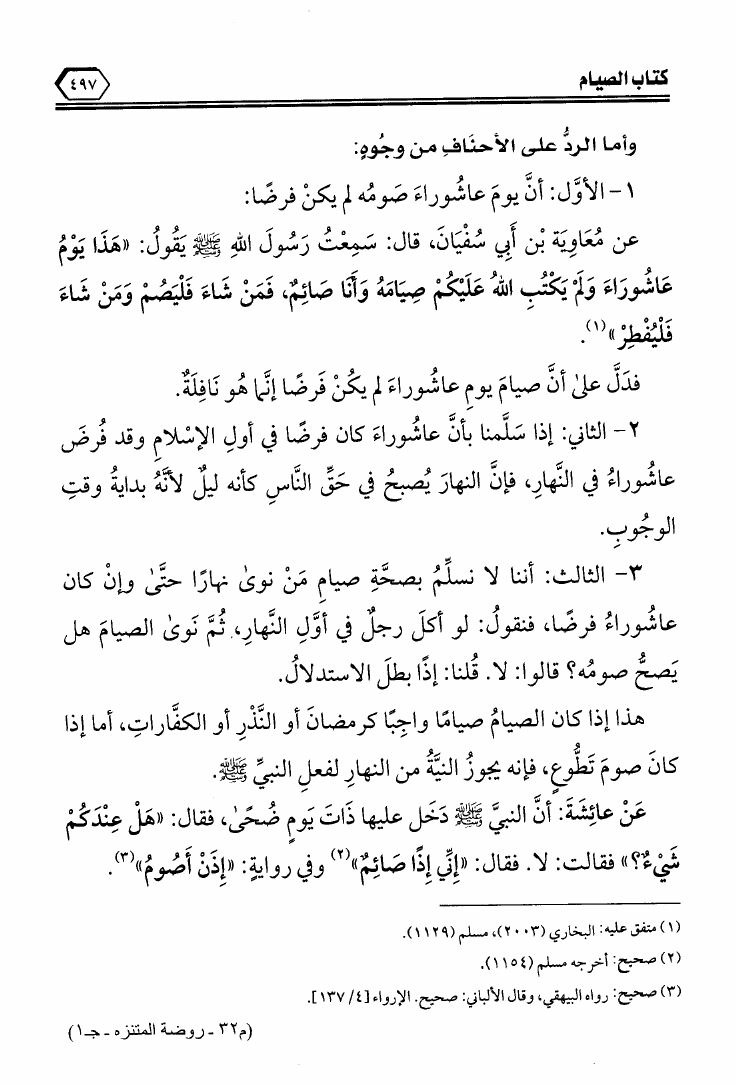 كتاب الصيام
٤٩٧
وأما الردُّ على الأحنَافِ من وجُوهٍ:
١- الأوَّل: أنَّ يومَ عاشُوراءَ صَومُه لم يكنْ فرضًا:
عن مُعَاوِيَة بْن أَبِي سُفْيَانَ، قال: سَمِعْتُ رَسُولَ اللهِ ﷺ يَقُولُ: «هَذَا يَوْمُ
عَاشُورَاءَ وَلَمْ يَكْتُبِ اللهُ عَلَيْكُمْ صِيَامَهُ وَأَنَا صَائِمٌ، فَمَنْ شَاءَ فَلْيَصُمْ وَمَنْ شَاءَ
فَلْيُفْطِرْ»(١).
فدَلَّ علىٰ أنَّ صيامَ يومِ عاشُوراءَ لم يكُنْ فَرضًا إنَّما هُو نَافِلَةٌ.
٢- الثاني: إذا سَلَّمنا بأنَّ عاشُوراءَ كان فرضًا في أولِ الإسْلامِ وقد فُرضَ
عاشُوراءُ في النَّهارِ، فإنَّ النهارَ يُصبحُ في حَقِّ النَّاسِ كأنه ليلٌ لأنَّهُ بدايةُ وقتِ
الوجُوبِ.
٣- الثالث: أننا لا نسلِّمُ بصحَّةِ صيامِ مَنْ نوىٰ نهارًا حتَّىٰ وإنْ كان
عاشُوراءُ فرضًا، فنقولُ: لو أكلَ رجلٌ في أوَّلِ النَّهارِ، ثُمَّ نَوىٰ الصيامَ هل
يَصحُّ صومُه؟ قالوا: لا. قُلنا: إذًا بطلَ الاستدلالُ.
هذا إذا كان الصيامُ صيامًا واجبًا كرمضانَ أو النَّذْرِ أو الكفَّاراتِ، أما إذا
كانَ صومَ تَطُّوعٍ، فإنه يجوزُ النيَّةُ من النهارِ لفعلِ النبيِّ ﷺ.
عَنْ عائِشَةَ: أنَّ النبيَّ ﷺ دَخَل عليها ذَاتَ يَومٍ ضُحًىٰ، فقال: «هَلْ عِنْدَكُمْ
شَيْءٌ؟» فقالت: لا. فقال: «إِنِّي إِذًا صَائِمٌ»(٢) وفي روايةٍ: «إِذَنْ أَصُومُ»(٣).
(١) متفق عليه: البخاري (٢٠٠٣)، مسلم (١١٢٩).
(٢) صحيح: أخرجه مسلم (١١٥٤).
(٣) صحيح: رواه البيهقي، وقال الألباني: صحيح. الإرواء [٤/ ١٣٧].
(م٣٢ - روضة المتنزه - جـ١)